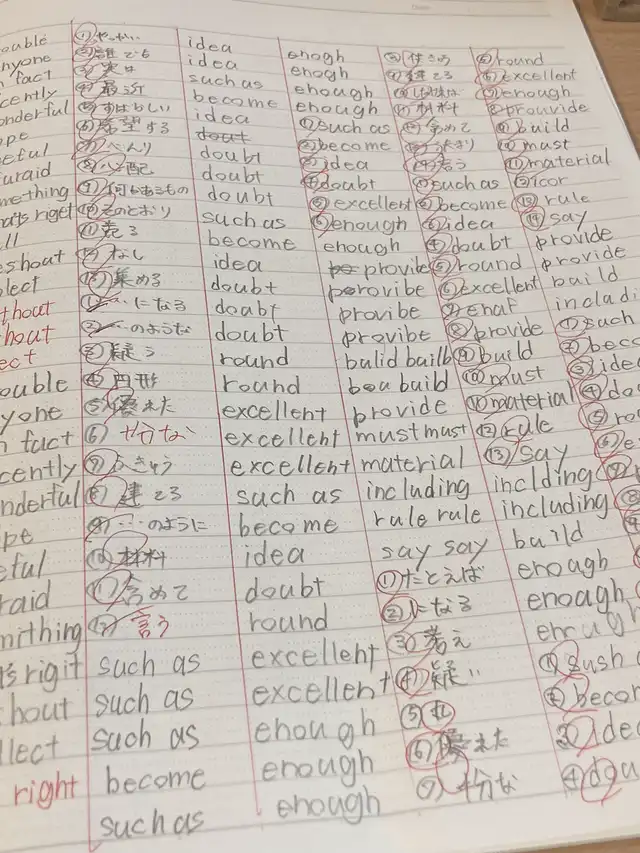 ouble
nyone
fact
cently
onderful
ope
eful
uraid
mething
hats riget
ll
eshout
olect
thout
hout
ect
ouble
yone
n fact
cently
nderful
ope
eful
raid
mithing
t's rigit
hout
llect
right
①やっかい
②誰でも
③実は
④最近
⑤すばらしい
⑥希望する
⑦べんり
⑧心配
⑨何かあるもの
⑩そのとおり
⑪売る
⑫なし
⑬集める
①…になる
②…のような
③疑う
④円形
⑤優れた
⑥十分な
⑦ききょう
⑧建てる
⑨…のように
⑩材料
⑪含めて
⑫言う
such as
such as
such as
become
such as
idea
idea
such as
become
idea
doubt
doubt
doubt
doubt
such as
become
idea
doubt
doubt
doubt
round
round
excellent
excellent
excellent
such as
become
idea
doubt
round
excellent
excellent
enough
enough
enough
enogh
enogh
enough
enough
①such as
②become
③idea
④doubt
⑤excellent
⑥enough
enough
provibe
porovibe
provibe
provibe
balid bailb
bou baild
provide
mustmust
material
including
rule rule
say say
①たとえば
②になる
③考え
④疑い
⑤丸
⑥優れた
⑦十分な
⑨建てる
⑪材料
⑫含めて
⑭言う
①such as
②become
③idea
④doubt
⑤round
⑥excellent
⑦enaf
⑧provide
⑨build
⑩must
⑪material
⑫rule
⑬say
inclding
including
build
enough
enoagh
enrugh
①sush
②becor
③idea
④dou
⑤round
⑥excellent
⑦enough
⑧prouvide
⑨build
⑩must
⑪material
⑫icor
⑬rule
⑭say
provide
provide
build
includi
①such
②beco
③idea
④do
⑤ro
⑥e